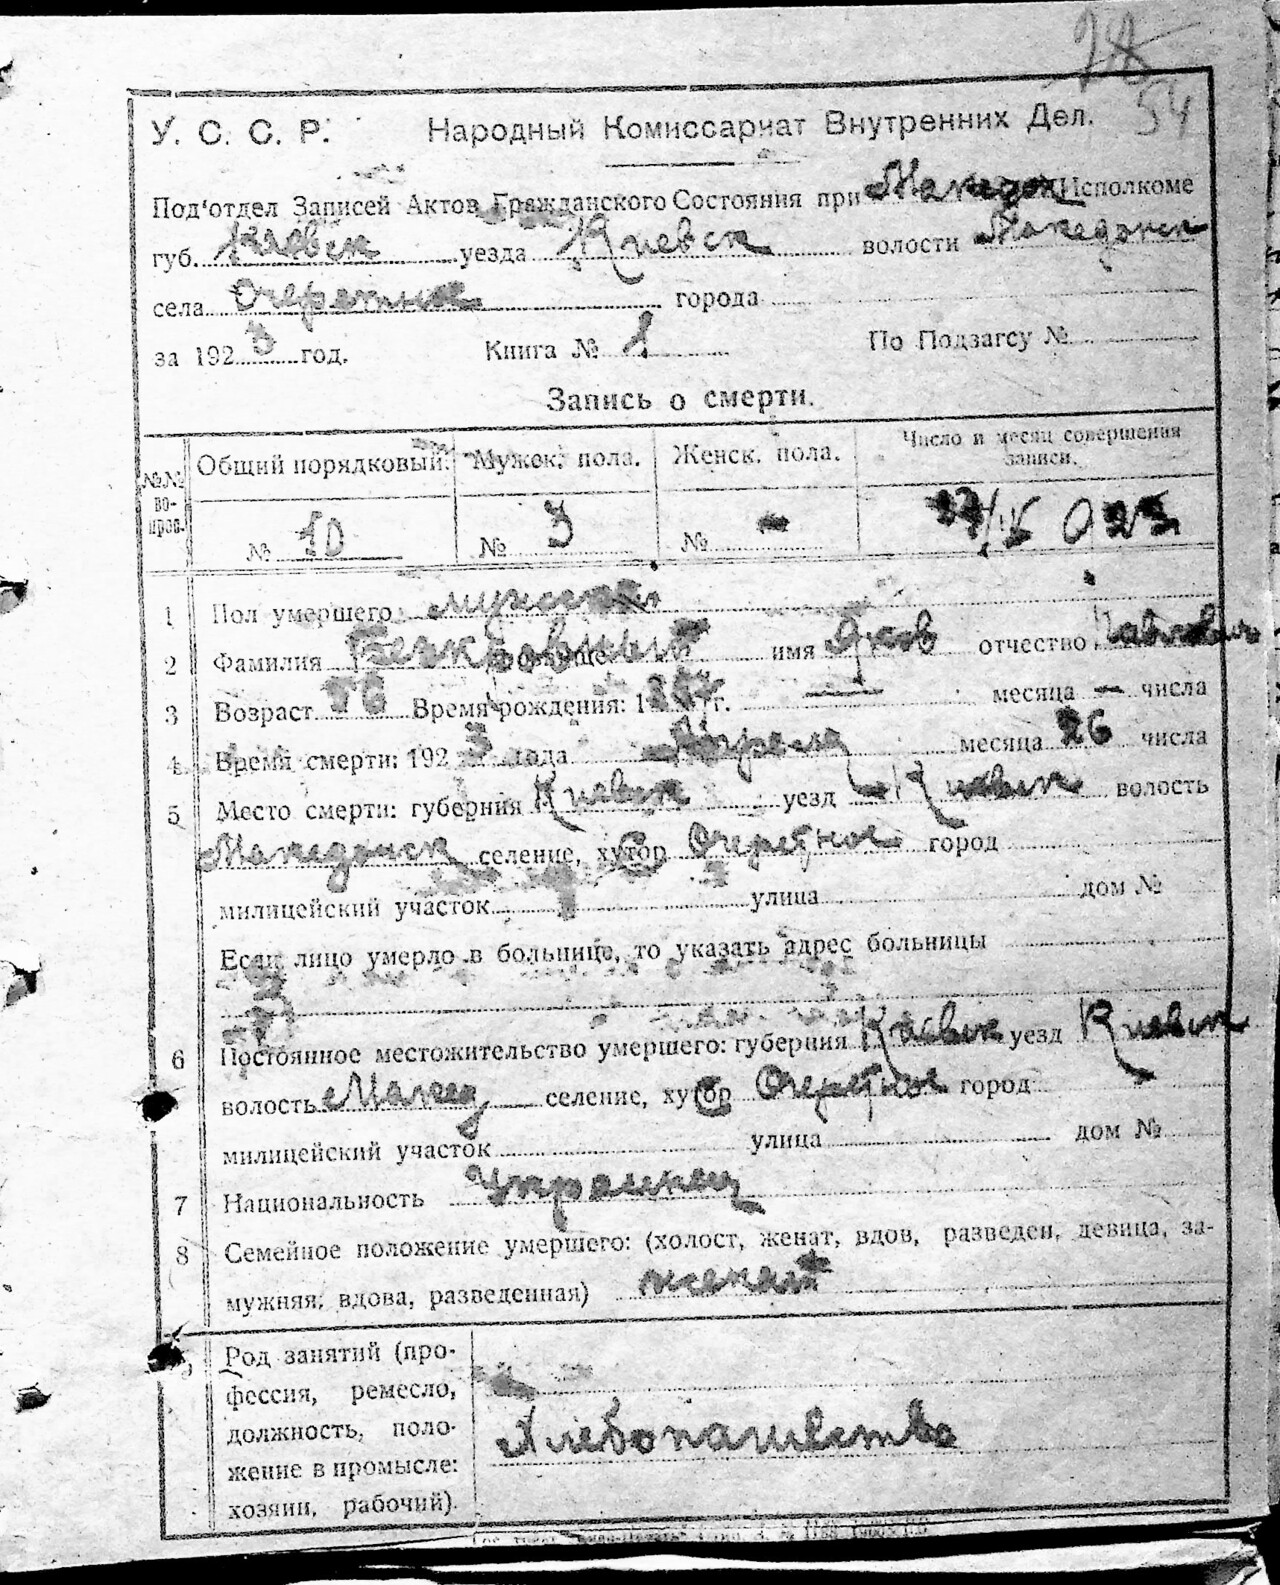 54
У. С. С. Р. Народный Комиссариат Внутренних Дел.
Под'отдел Записей Актов Гражданского Состояния при Македон Исполкоме
губ. Киевск уезда Киевск волости Македонск
села Очеретное города
за 1923 год. Книга № 1 По Подзагсу №
Запись о смерти.
№№ вопров. Общий порядковый. Мужск. пола. Женск. пола. Число и месяц совершения записи.
№ 10 № 3 № - 27/IV 923
1 Пол умершего мужской
2 Фамилия имя Яков отчество Павлович
3 Возраст 56 Время рождения: 1 г. — месяца — числа
4 Время смерти: 1923 года Апреля месяца 26 числа
5 Место смерти: губерния Киевск уезд Киевск волость
Македонск селение, хутор Очеретное город
милицейский участок улица дом №
Если лицо умерло в больнице, то указать адрес больницы
6 Постоянное местожительство умершего: губерния Киевск уезд Киевск
волость Макед селение, хутор Очеретное город
милицейский участок улица дом №
7 Национальность Украинец
8 Семейное положение умершего: (холост, женат, вдов, разведен, девица, за-
мужняя, вдова, разведенная) женат
Род занятий (про-
фессия, ремесло,
должность, поло-
жение в промысле:
хозяин, рабочий).
Хлебопашество